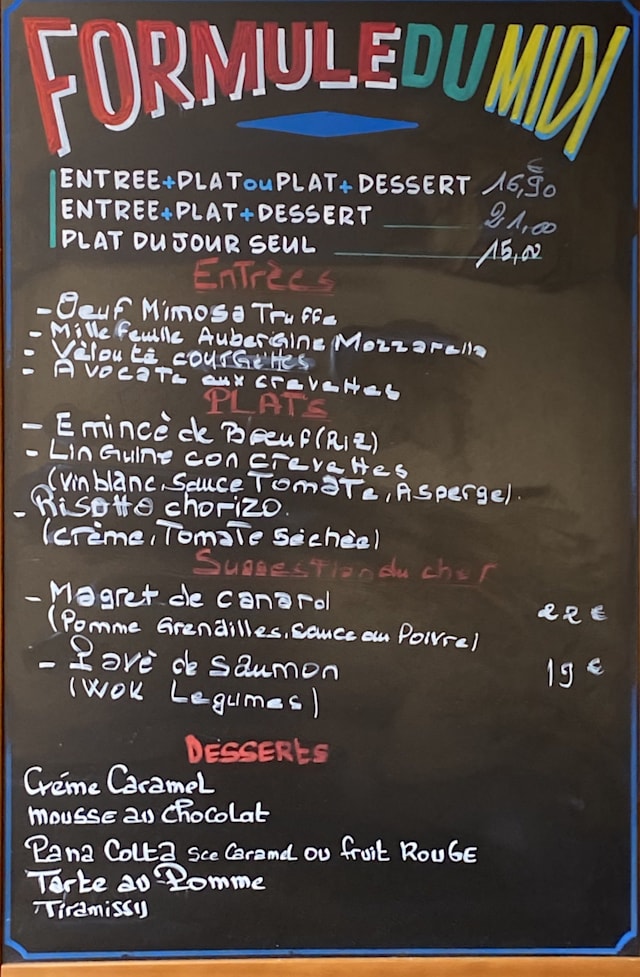 FORMULE DU MIDI
ENTREE+PLAT ou PLAT+DESSERT 16,90 €
ENTREE+PLAT+DESSERT 21,00
PLAT DU JOUR SEUL 15,00
Entrèes
- Oeuf Mimosa Truffe
- Mille feuille Aubergine Mozzarella
- Vèloutè courgettes
- Avocate aux crevettes
PLATS
- Emincè de Bœuf (Riz)
- Linguine con crevettes
(vin blanc, Sauce Tomate, Asperge).
- Risotto chorizo.
(crème, Tomate Séchèe)
Suggestion du chef
- Magret de canard 22 €
(Pomme Grenailles, sauce au Poivre)
- Pavè de saumon 19 €
(Wok Legumes)
DESSERTS
Créme Caramel
mousse au chocolat
Pana Colta Sce Caramel ou fruit ROUGE
Tarte au Pomme
Tiramissu